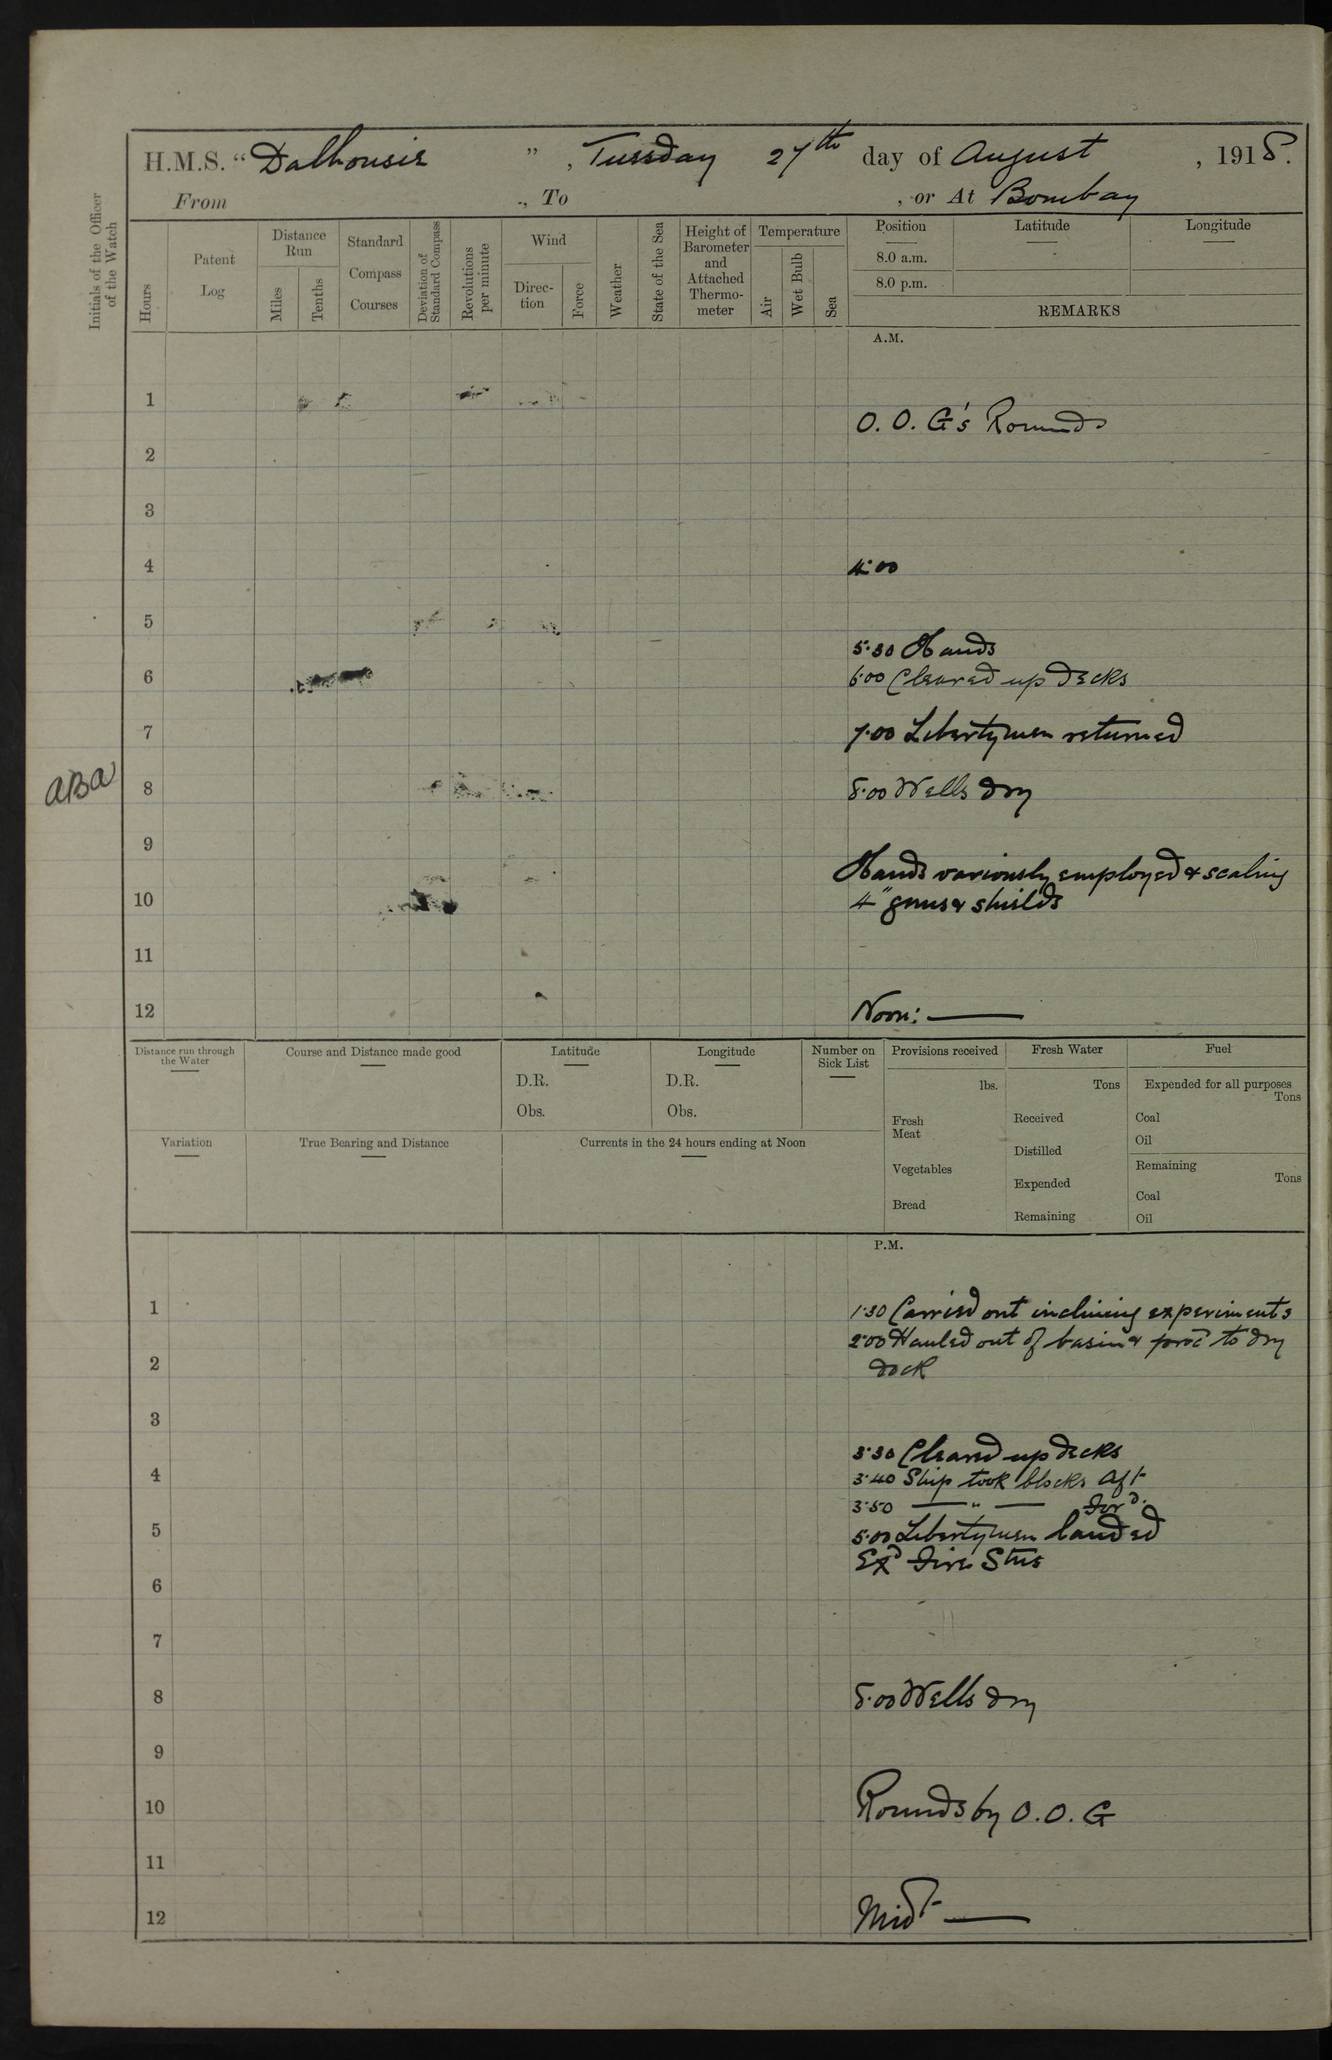 H.M.S. "Dalhousie", Tuesday 27th day of August, 1918.
From , To , or At Bombay
Initials of the Officer of the Watch
Hours
Patent Log
Distance Run
Miles
Tenths
Standard Compass Courses
Deviation of Standard Compass
Revolutions per minute
Wind
Direction
Force
Weather
State of the Sea
Height of Barometer and Attached Thermometer
Temperature
Air
Wet Bulb
Sea
Position
Latitude
Longitude
8.0 a.m.
8.0 p.m.
REMARKS
A.M.
1
O. O. G's Rounds
2
3
4
4.00
5
5.30 Hands
6
6.00 Cleared up decks
7
7.00 Libertymen returned
ABA
8
8.00 Wells dry
9
Hands variously employed & scaling
10
4" guns & shields
11
12
Noon: —
Distance run through the Water
Course and Distance made good
Latitude
D.R.
Obs.
Longitude
D.R.
Obs.
Number on Sick List
Provisions received
lbs.
Fresh Meat
Vegetables
Bread
Fresh Water
Tons
Received
Distilled
Expended
Remaining
Fuel
Expended for all purposes
Tons
Coal
Oil
Remaining
Tons
Coal
Oil
Variation
True Bearing and Distance
Currents in the 24 hours ending at Noon
P.M.
1
1.30 Carried out inclining experiments
2.00 Hauled out of basin & procd to dry
2
dock
3
3.30 Cleared up decks
4
3.40 Ship took blocks aft
3.50 — " — For'd.
5
5.00 Libertymen landed
Exd Fire Stns
6
7
8
8.00 Wells dry
9
10
Rounds by O. O. G
11
12
Midt —